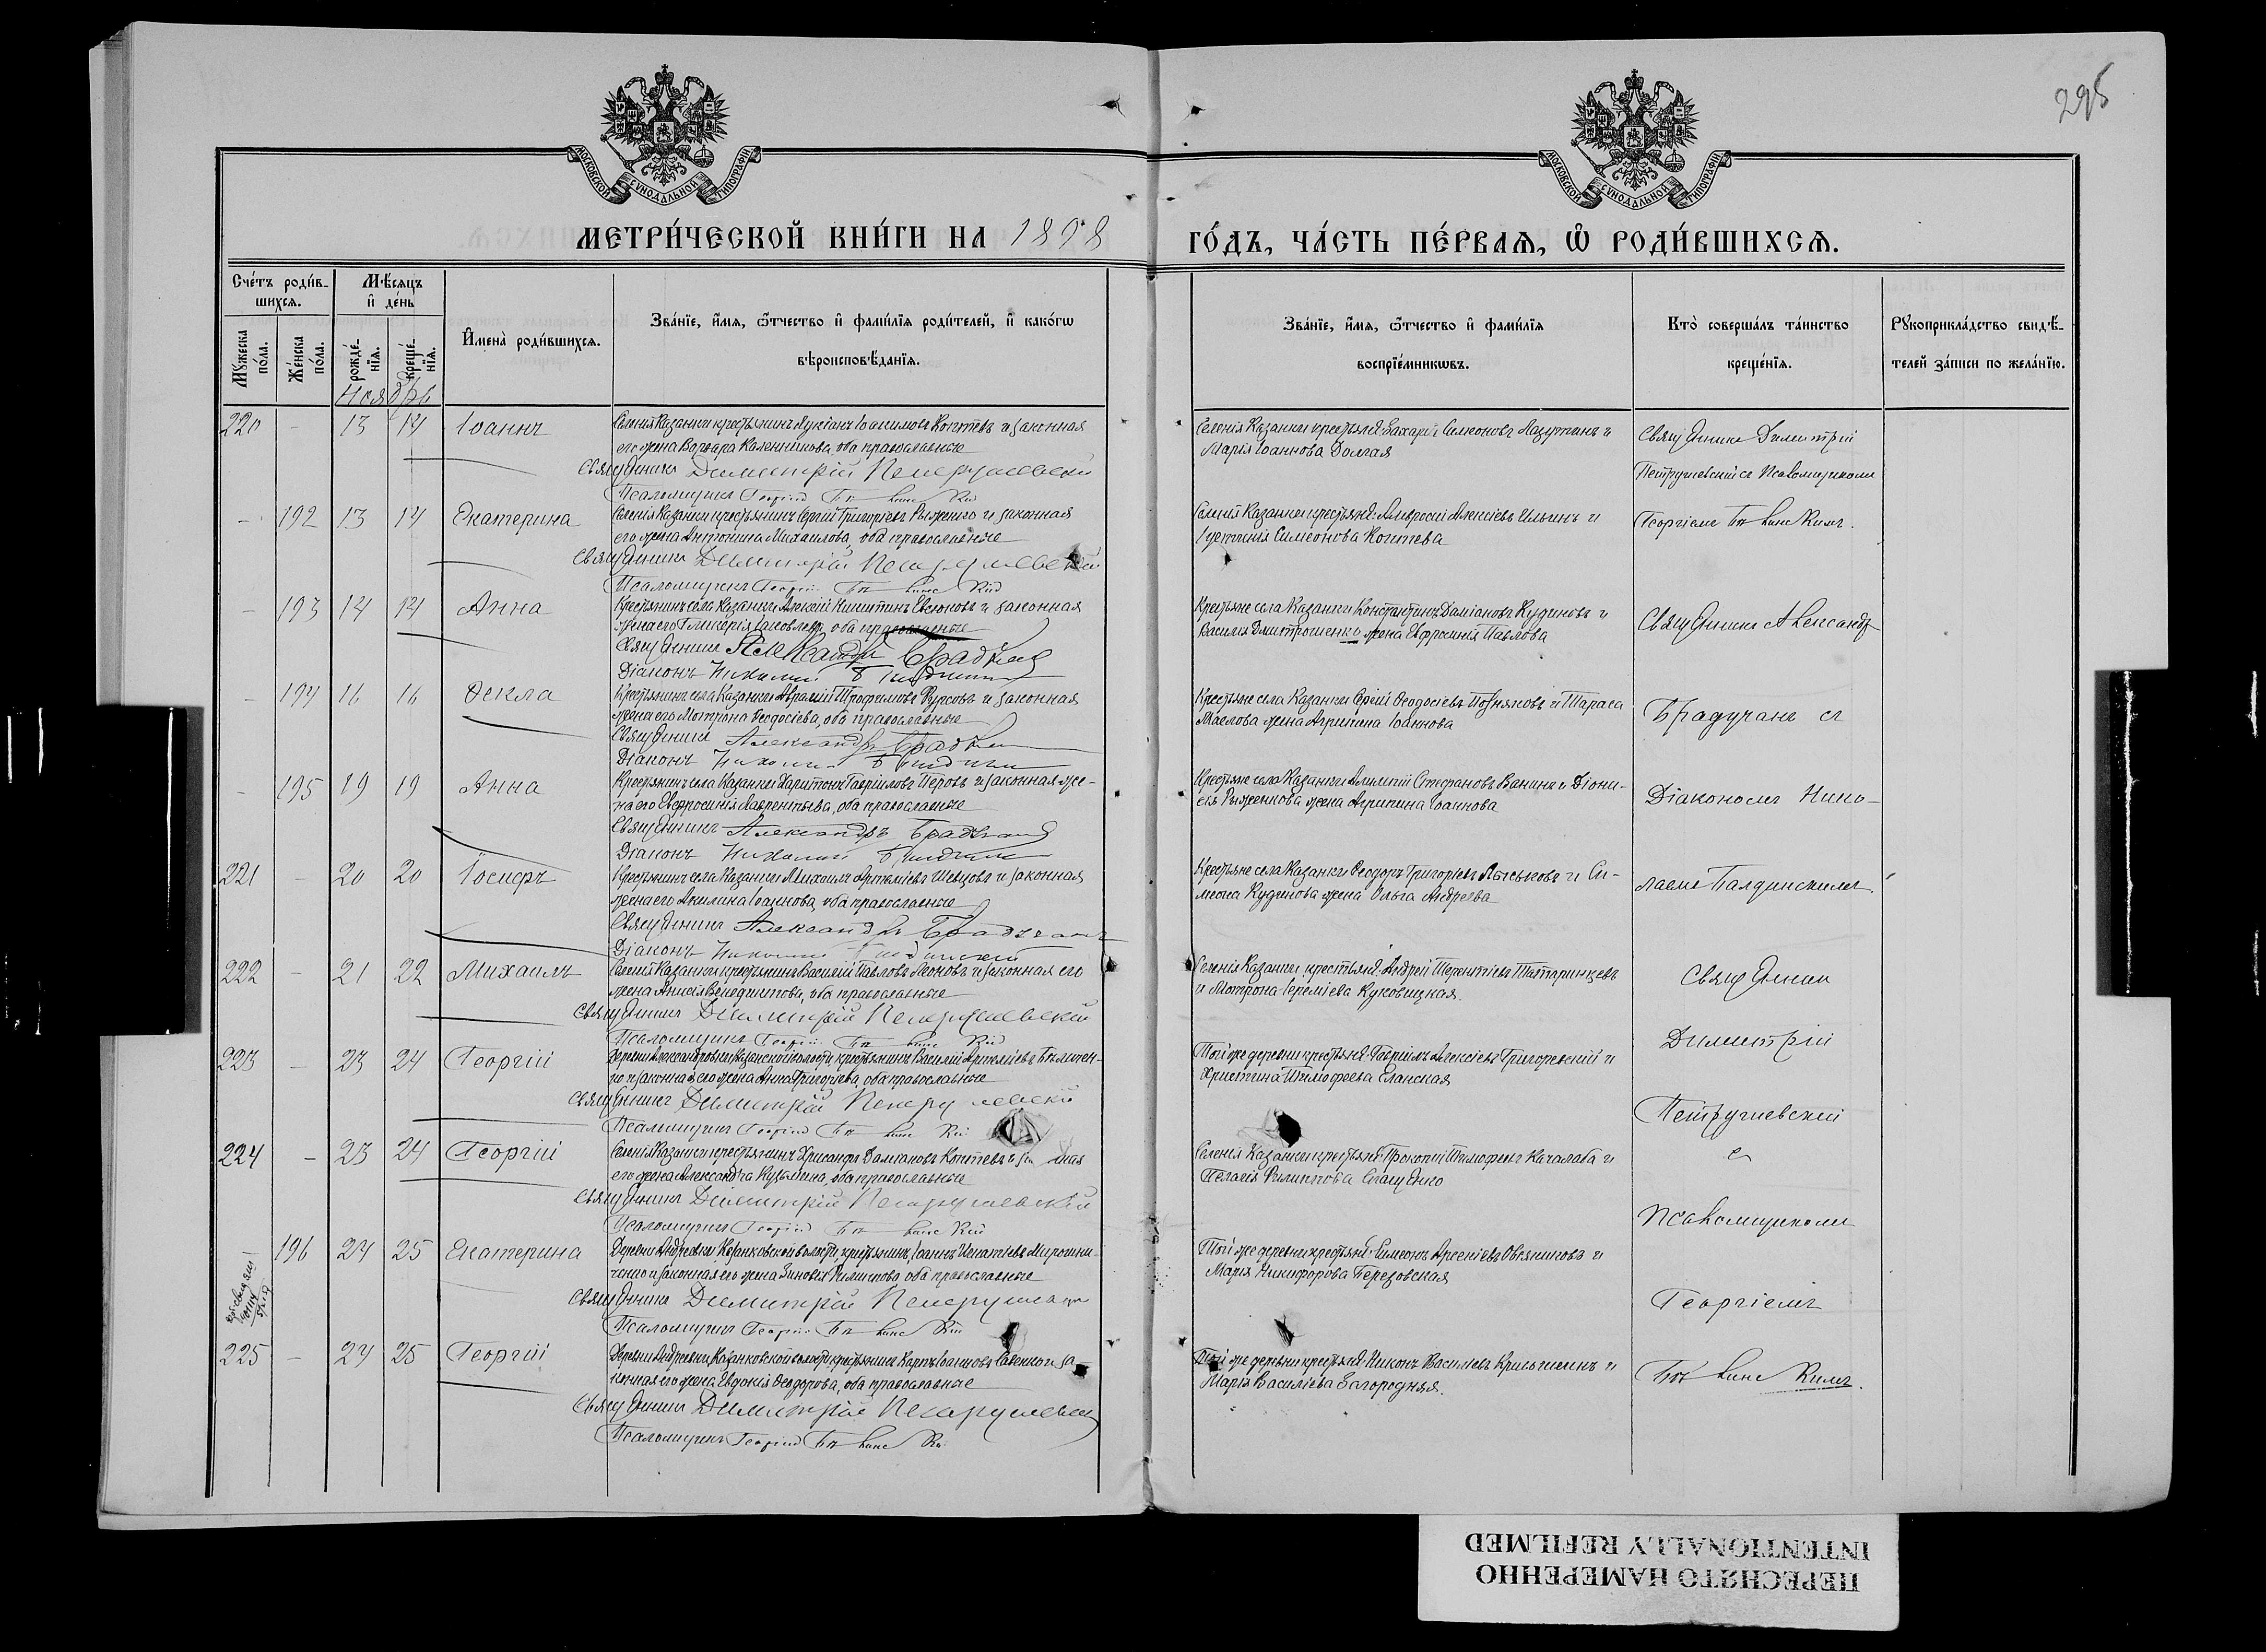 295
МОСКОВСКОЙ СУНОДАЛЬНОЙ ТИПОГРАФІИ
МОСКОВСКОЙ СУНОДАЛЬНОЙ ТИПОГРАФІИ
МЕТРИ́ЧЕСКОЙ КНИ́ГИ НА 1898
ГО́ДЪ, ЧА́СТЬ ПЕ́РВАѦ, Ѡ РОДИ́ВШИХСѦ.
Сче́тъ роди́в-
шихсѧ.
Мꙋжеска по́ла.
Же́нска по́ла.
Мѣ́сѧцъ
и҆ де́нь
рожде́-
нїѧ.
креще́-
нїѧ.
И҆мена̀ роди́вшихсѧ.
Зва́нїе, и҆́мѧ, ѻ҆́тчество и҆ фами́лїѧ роди́телей, и҆ како́гѡ
вѣроисповѣ́данїѧ.
Зва́нїе, и҆́мѧ, ѻ҆́тчество и҆ фами́лїѧ
воспрїе́мникѡвъ.
Кто̀ соверша́лъ та́инство
креще́нїѧ.
Рꙋкоприкла́дство свидѣ́-
телей за́писи по жела́нїю.
Ноябрь
220 - 13 14 Іоаннъ
Селенія Казанки крестьянинъ Лукіанъ Іоакимовъ Коптевъ и законная
его жена Варвара Калинникова, оба православные
Священникъ Димитрій Петрушевскій
Псаломщикъ Георгій
Селенія Казанки крестьяне: Захарій Симеоновъ Лазуткинъ и
Марія Іоаннова Долгая
Священникъ Димитрій
Петрушевскій съ Псаломщикомъ
- 192 13 14 Екатерина
Селенія Казанки крестьянинъ Сергій Григоріевъ Рыженко и законная
его жена Антонина Михаилова, оба православные
Священникъ Димитрій Петрушевскій
Псаломщикъ Георгій
Селенія Казанки крестьяне: Амвросій Алексіевъ Ильинъ и
Іустинія Симеонова Коптева
Георгіемъ
- 193 14 14 Анна
Крестьянинъ села Казанки Алексій Никитинъ Евсюковъ и законная
жена его Гликерія Іаковлева, оба православные
Священникъ Александръ
Діаконъ Николай
Крестьяне села Казанки Константинъ Даміановъ Кудиновъ и
Василія Дмитрошенко жена Евфросинія Павлова
Священникъ Александр
- 194 16 16 Ѳекла
Крестьянинъ села Казанки Авраамій Трофимовъ Фурсовъ и законная
жена его Матрона Ѳеодосіева, оба православные
Священникъ Александръ
Діаконъ Николай
Крестьяне села Казанки Сергій Ѳеодосіевъ Позняковъ и Тараса
Маслова жена Агрипина Іоаннова
Брадучанъ съ
- 195 19 19 Анна
Крестьянинъ села Казанки Харитонъ Гавріиловъ Перовъ и законная же-
на его Евфросинія Лаврентьева, оба православные
Священникъ Александръ
Діаконъ Николай
Крестьяне села Казанки Алимпій Стефановъ Ванинъ и Діони-
сія Рыженкова жена Агрипина Іоаннова
Діакономъ Нико-
221 - 20 20 Іосифъ
Крестьянинъ села Казанки Михаилъ Артеміевъ Шевцовъ и законная
жена его Акилина Іоаннова, оба православные
Священникъ Александръ
Діаконъ Николай
Крестьяне села Казанки Ѳеодоръ Григоріевъ Лыськовъ и Си-
меона Кудинова жена Ольга Андреева
лаемъ Балдинскимъ.
222 - 21 22 Михаилъ
Селенія Казанки крестьянинъ Василій Павловъ Леоновъ и законная его
жена Анисія Венедиктова, оба православные
Священникъ Димитрій Петрушевскій
Псаломщикъ Георгій
Селенія Казанки крестьяне: Андрей Терентіевъ Татаринцевъ
и Матрона Іереміева Куковицкая.
Священникъ
Димитрій
223 - 23 24 Георгій
Деревни Александровки Казанской волости, крестьянинъ Василій Артеміевъ
и законная его жена Анна Григоріева, оба православные
Священникъ Димитрій Петрушевскій
Псаломщикъ Георгій
Той же деревни крестьяне: Гавріилъ Алексіевъ Григоревскій и
Христина Тимофеева Еланская
Петрушевскій
съ
224 - 23 24 Георгій
Селенія Казанки крестьянинъ Хрисанфъ Даміановъ Коптевъ и
его жена Александра Кузьмина, оба православные
Священникъ Димитрій Петрушевскій
Псаломщикъ Георгій
Селенія Казанки крестьяне: Прокопій Тимофеевъ Качалаба и
Пелагія Филиппова
Псаломщикомъ
196 24 25 Екатерина
Деревни Андреевки Казанковской волости, крестьянинъ Іоаннъ Игнатіевъ Мирошни-
ченко и законная его жена Зиновія Филиппова оба православные
Священникъ Димитрій
Псаломщикъ Георгій
Той же деревни крестьяне: Симеонъ Арсеніевъ Овсяниковъ и
Марія Никифорова Березовская
Георгіемъ
225 - 24 25 Георгій
Деревни Андреевки, Казанковской волости крестьянинъ Карпъ Іоанновъ Савенко и за-
конная его жена Евдокія Ѳеодорова, оба православные
Священникъ Димитрій Петрушевскій
Псаломщикъ Георгій
Той же деревни крестьяне: Никонъ Василіевъ и
Марія Василіева Загородняя.
ПЕРЕСНЯТО НАМЕРЕННО
INTENTIONALLY REFILMED